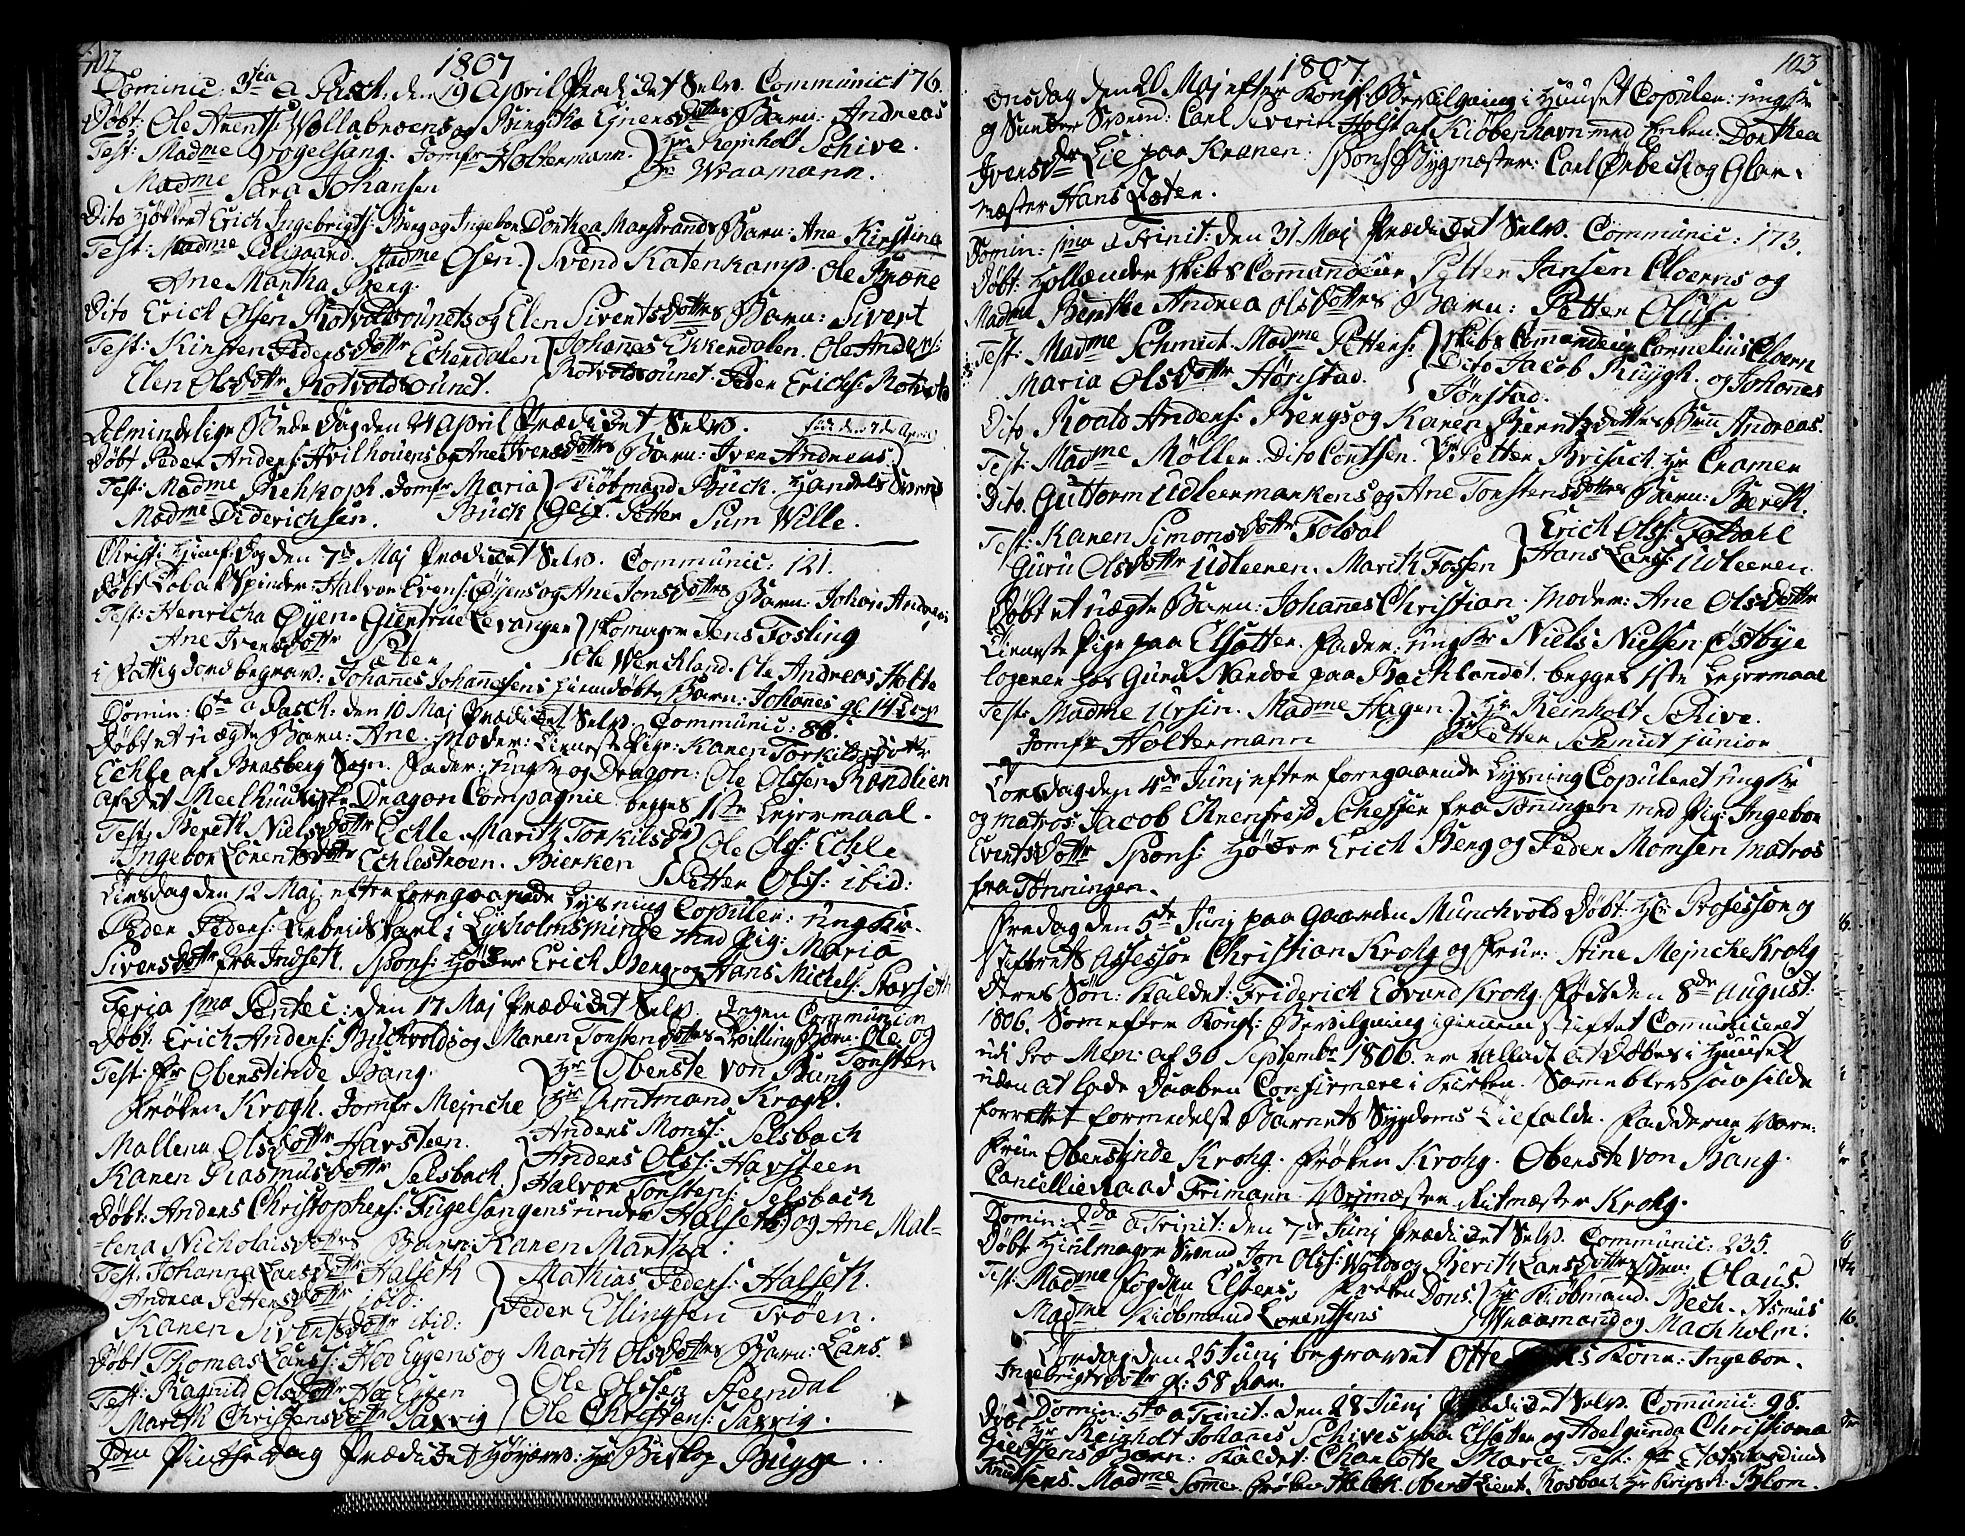 102
1807
Dominic: 3tia a Pasch: den 19 April Prædicket Selv. Communic: 176.
Døbt: Ole Arents: Wollabroens og Birgitha Ejners Dottrs Barn: Andreas
Test: Madme Vogelsang. Jomfr Holtermann. Hr Rejnholt Schive.
Madme Sara Johansen Hr Wraamann.
Dito Erich Ingebrigts: Berg og Ingebor Dorthea Marstrands Barn: Ane Kirstina
Test: Madme Madme Olsen Svend Katenkamp. Ole Bræne
Ane Martha Berg.
Dito Erich Olsen Rotvoldsounets og Elen Siverts Dottrs Barn: Sivert
Test: Kirsten Peders Dottr Echerdalen Johanes Ekkerdalen. Ole Anders:
Elen Ols Dottr Rotvoldsounet. Rotvoldsounet. Peder Erichs: Rotvold
Almindelige Bededag den 24 April Prædicket Selv.
Døbt Peder Anders: Hvilhouens og Ane Ivers Dottrs Barn: Iver Andreas
Test: Madme Rehkoph. Jomfr Maria Kiøbmand Buck. Handels Svend
Madme Diderichsen. Buck Petter Sum Wille.
Christi Himf: Dag den 7de Maj Prædicket Selv. Communic: 121.
Døbt Tobak Spinder: Halvor Evens: Øyens og Ane Jons Dottrs Barn: Johan Andreas
Test: Henricha Øyen. Giertrue Levanger Skomager Jens Fosling
Ane Ivers Dottr Sæter Ole Werkland. Ole Andreas Holte
i Fattig Jord begrav: Johanes Johannesens Hiemdøbte Barn: Johanes gl 14 Dage
Domin: 6ta a Pasch: den 10 Maj Prædicket Selv. Communic: 86.
Døbt et uægte Barn: Ane. Moder: Tieneste Pige: Karen Torkilds Dottr
Echle af Bratsberg Sogn. Fader: ungkr og Dragon: Ole Olsen Randlien
af det Meelhuuske Dragon Compagnie. begges 1ste Lejermaal.
Test: Berett Niels Dottr Echle. Marith Torkilds Dr Ole Ols: Echle
Ingebor Lorents Dottr Echlestroen. Bierken Petter Ols: ibid:
Tirsdag den 12 Maj efter foregaaende Lysning Copuler: ungkr.
Peder Peders: Arbeidskarl i Lysholms minde med Pig: Maria
Sivers Dottr fra Indseth. Spons: Erich Berg og Hans Michels: Stavseth
Feria 1ma Pentec: den 17 Maj Prædicket Selv. Ingen Communion
Døbt: Erich Anders: Buchvolds og Maren Torsten Dottrs Tvilling Børn: Ole og
Test: Fr Oberstinde Bang. Hr Oberste von Bang Torsten
Frøken Krogh. Jomfr Mejnche Hr Amtmand Krogh.
Mallena Ols Dottr Havsteen. Anders Mons: Selsbach
Karen Rasmus Dottr Selsbach Anders Ols: Havsteen
Halvor Torstens: Selsbach
Døbt: Anders Christophers: Fugelsangens under Halseth og Ane Mal-
lena Nicholais Dottrs Barn: Karen Martha:
Test: Johanna Lars Dottr Halseth Mathias Peders: Halseth.
Andrea Petters Dottr ibid: Peder Ellingsen Trøen.
Karen Sivers Dottr ibid:
Døbt Thomas Lars: Hoeggens og Marith Ols Dottrs Barn: Lars.
Test: Ragnild Ols Dottr Hoeggen Ole Olsen Steendal
Marith Christens Dottr Saxvig Ole Christens: Saxvig.
2den Pintse Dag Prædicket Høyærv: Hr Biskop Bugge.
103
1807
Onsdag den 20 Maj efter Kongl: Bevilgning i Huuset Copuler: ungkr
og Svend: Carl Severin Holst af Kiøbenhavn med Enken: Dorthea
Ivers Dr Lie paa Kranen: Spons: Bygmester: Carl Ørbeck og Glar-
mæster Hans Sæter.
Domin: 1ma a Trinit: den 31 Maj Prædicket Selv. Communic: 173.
Døbt: Hollænder Skibs Commandeur Petter Jansen Cloerns og
Madm Benthe Andrea Ols Dottrs Barn: Petter Oluf.
Test: Madme Schmidt. Madme Petters: Skibs Commandeur Cornelius Cloern
Maria Ols Dottr Hørstad. Dito Jacob Kuygh. og Johanes
Jønstad.
Dito Roald Anders: Bergs og Karen Bernts Dottrs Barn Andreas.
Test: Madme Møller. Dito Cortsen. Hr Petter Brisack. Hr Cramer
Dito Guttorm Udleermarkens og Ane Torstens Dottrs Barn: Berett.
Test: Karen Simons Dottr Foldal Erich Ols: Foldahl
Guru Ols Dottr Udleeren. Marith Fossen Hans Lars: Udleeren.
Døbt et uægte Barn: Johanes Christian. Moder: Ane Ols Dottr
Tieneste Pige paa Elsetter. Fader: ungkr Niels Nielsen Østbye
logerer hos Guru Nardoe paa Bachlandet. begges 1ste Lejermaal
Test: Madme Ursin. Madme Hagen. Hr Reinholt Schive.
Jomfr Holtermann Hr Petter Schmidt junior
Torsdag den 4de Junj efter foregaaende Lysning Copuleret ungkr
og matros: Jacob Ehrenfrejd Scheffer fra Tønningen med Pig: Ingebor
Everts Dottr Spons: Erich Berg og Peder Momsen matros
fra Tønningen.
Fredag den 5te Junj paa Gaarden Munchvold Døbt: Hr Professor og
Stiftrets Assessor Christian Krohg og Frue: Stine Mejncke Krohg
Deres Søn: Kaldet: Friderich Edvard Krohg. Født den 8de August:
1806. Som efter Kongl: Bevilgning igiennem Stiftet Communiceret
udi Pro Mem: af 30 Septembr 1806. er tilladt at Døbes i Huuset
uden at lade Daaben Confirmere i Kirken. Samme blev saa silde
forrettet formedelst Barnets Sygdoms Tilfælde. Fadderne var:
Frue Oberstinde Krohg. Frøken Krohg. Oberste von Bang.
Cancellieraad Frimann. Ritmæster Krohg.
Domin: 2da a Trinit: den 7de Junj Prædicket Selv. Communic: 235.
Døbt Hiulmager Svend Jon Ols: Wolds og Berith Lars Dottrs Søn: Olaus.
Test: Madme Foged Elster. Frøken Dons. Hr Kiøbmand. Bech. Asmus
Madme Kiøbmand Lorentsens Wraamand og Machholm.
Torsdag den 25 Junj begravet Otte Kone: Ingebor.
Ingebrigts Dottr gl: 58 Aar.
Domin: 5ta a Trinit: den 28 Junj Prædicket Selv. Communic: 98.
Døbt Hr Reinholt Johanes Schives paa Elsetter og Adelgunda Christiana
Barn: Kaldet: Charlotte Marie. Test: Fr Etatsraadinde
Knudtzens. Madme Somer. Frøken Rosbach. Hr Blom.